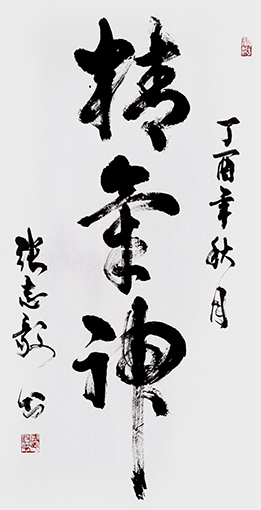 精氣神
丁酉年秋月
张志毅书